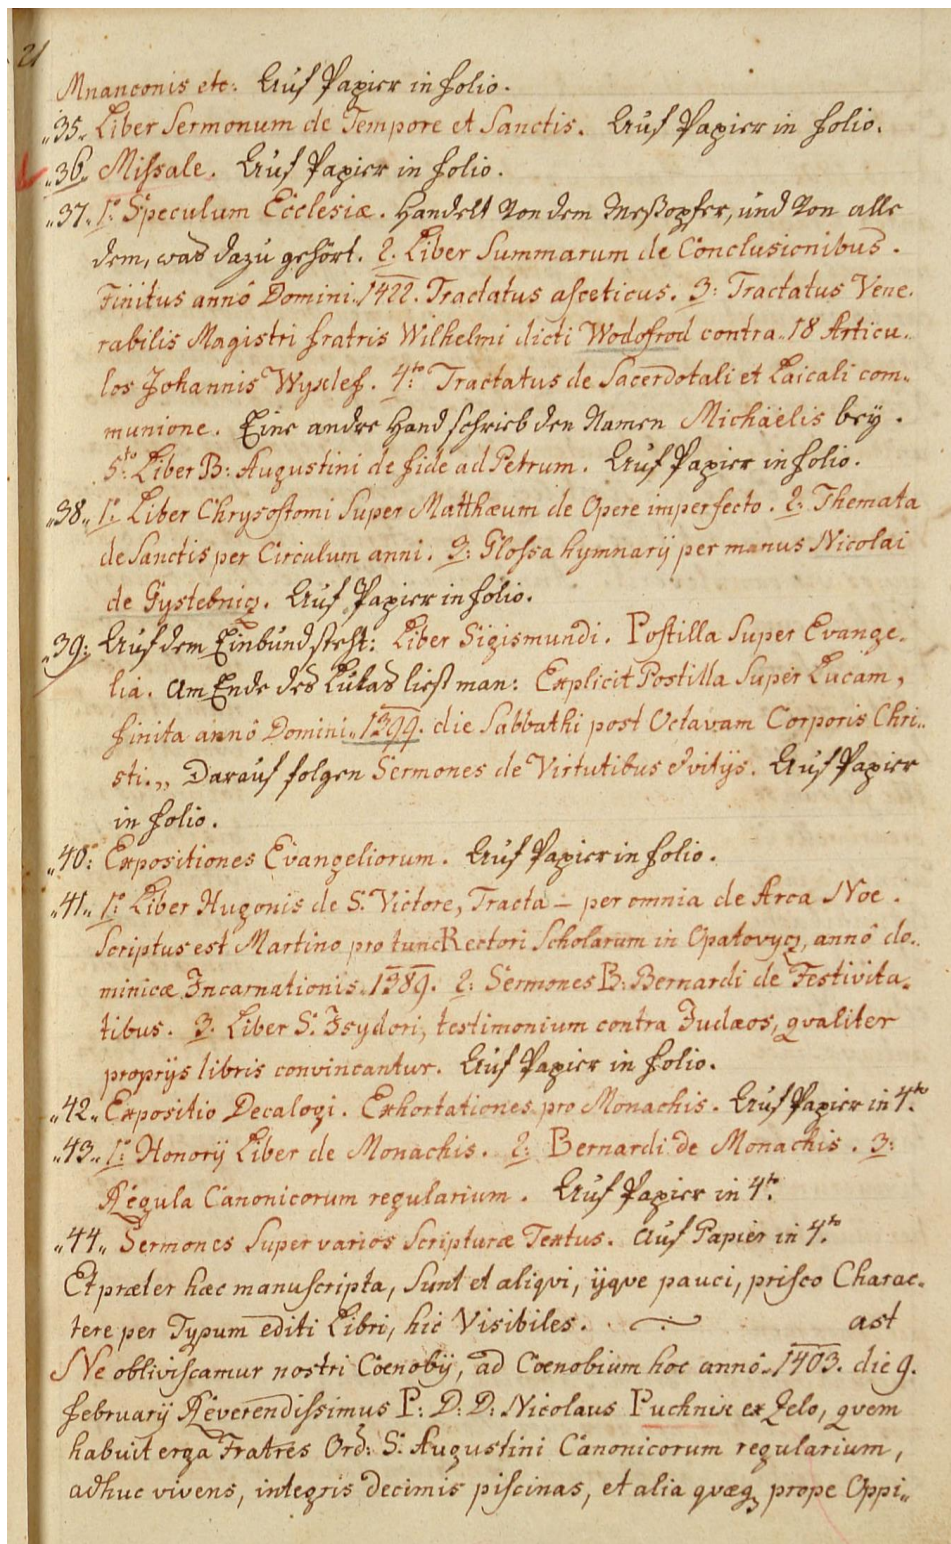 21
Mnanconis etc: Auf Papier in folio.
„35„ Liber Sermonum de Tempore et Sanctis. Auf Papier in folio.
„36„ Missale. Auf Papier in folio.
„37„ 1o: Speculum Ecclesiæ. Handelt von dem Meßopfer, und von alle
dem, was dazu gehört. 2. Liber Summarum de Conclusionibus.
Finitus annô Domini„1422. Tractatus asceticus. 3: Tractatus Vene„
rabilis Magistri fratris Wilhelmi dicti Wodofrod contra„18 Articu„
los Johannis Wyclef. 4to: Tractatus de Sacerdotali et Laicali com„
munione. Eine andre Hand schrieb den Namen Michaëlis bey.
5to: Liber B: Augustini de fide ad Petrum. Auf Papier in folio.
„38„ 1o: Liber Chrysostomi super Matthæum de Opere imperfecto. 2: Themata
de Sanctis per Circulum anni. 3: Glossa hymnarÿ per manus Nicolai
de Gystebnicz. Auf Papier in folio.
„39: Auf dem Einbund steht: Liber Sigismundi. Postilla super Evange„
lia. Am Ende des Lukas liest man: Explicit Postilla super Lucam,
finita annô Domini„1399. die Sabbathi post Octavam Corporis Chri„
sti.„ Darauf folgen Sermones de Virtutibus & vitÿs. Auf Papier
in folio.
„40: Expositiones Evangeliorum. Auf Papier in folio.
„41„ 1o: Liber Hugonis de S. Victore, Tracta – per omnia de Arca Noe.
Scriptus est Martino pro tunc Rectori Scholarum in Opatovycz, annô do„
minicæ Incarnationis„1389. 2: Sermones B: Bernardi de Festivita„
tibus. 3. Liber S. Isydori, testimonium contra Judæos, qvaliter
proprÿs libris convincantur. Auf Papier in folio.
„42„ Expositio Decalogi. Exhortationes pro Monachis. Auf Papier in 4to.
„43„ 1o: Honorÿ Liber de Monachis. 2: Bernardi de Monachis. 3:
Regula Canonicorum regularium. Auf Papier in 4to.
„44„ Sermones super varios Scripturæ Textus. Auf Papier in 4to.
Et præter hæc manuscripta, sunt et aliqvi, ÿqve pauci, prisco Charac„
tere per Typum editi Libri, hic Visibiles. ast
Ne obliviscamur nostri Cœnobÿ, ad Cœnobium hoc annô„1403. die 9.
februarÿ Reverendissimus P: D: D: Nicolaus Puchnik ex Zelo, qvem
habuit erga Fratres Ord: S. Augustini Canonicorum regularium,
adhuc vivens, integris decimis piscinas, et alia qvæq3 prope Oppi„